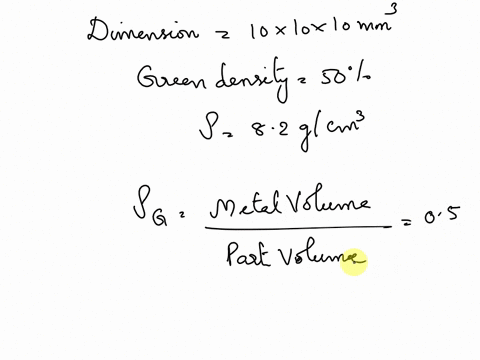 Dimension = 10×10×10 mm³
Green density = 50%
ρ = 8.2 g/cm³
ρG = Metal Volume / Part Volume = 0.5